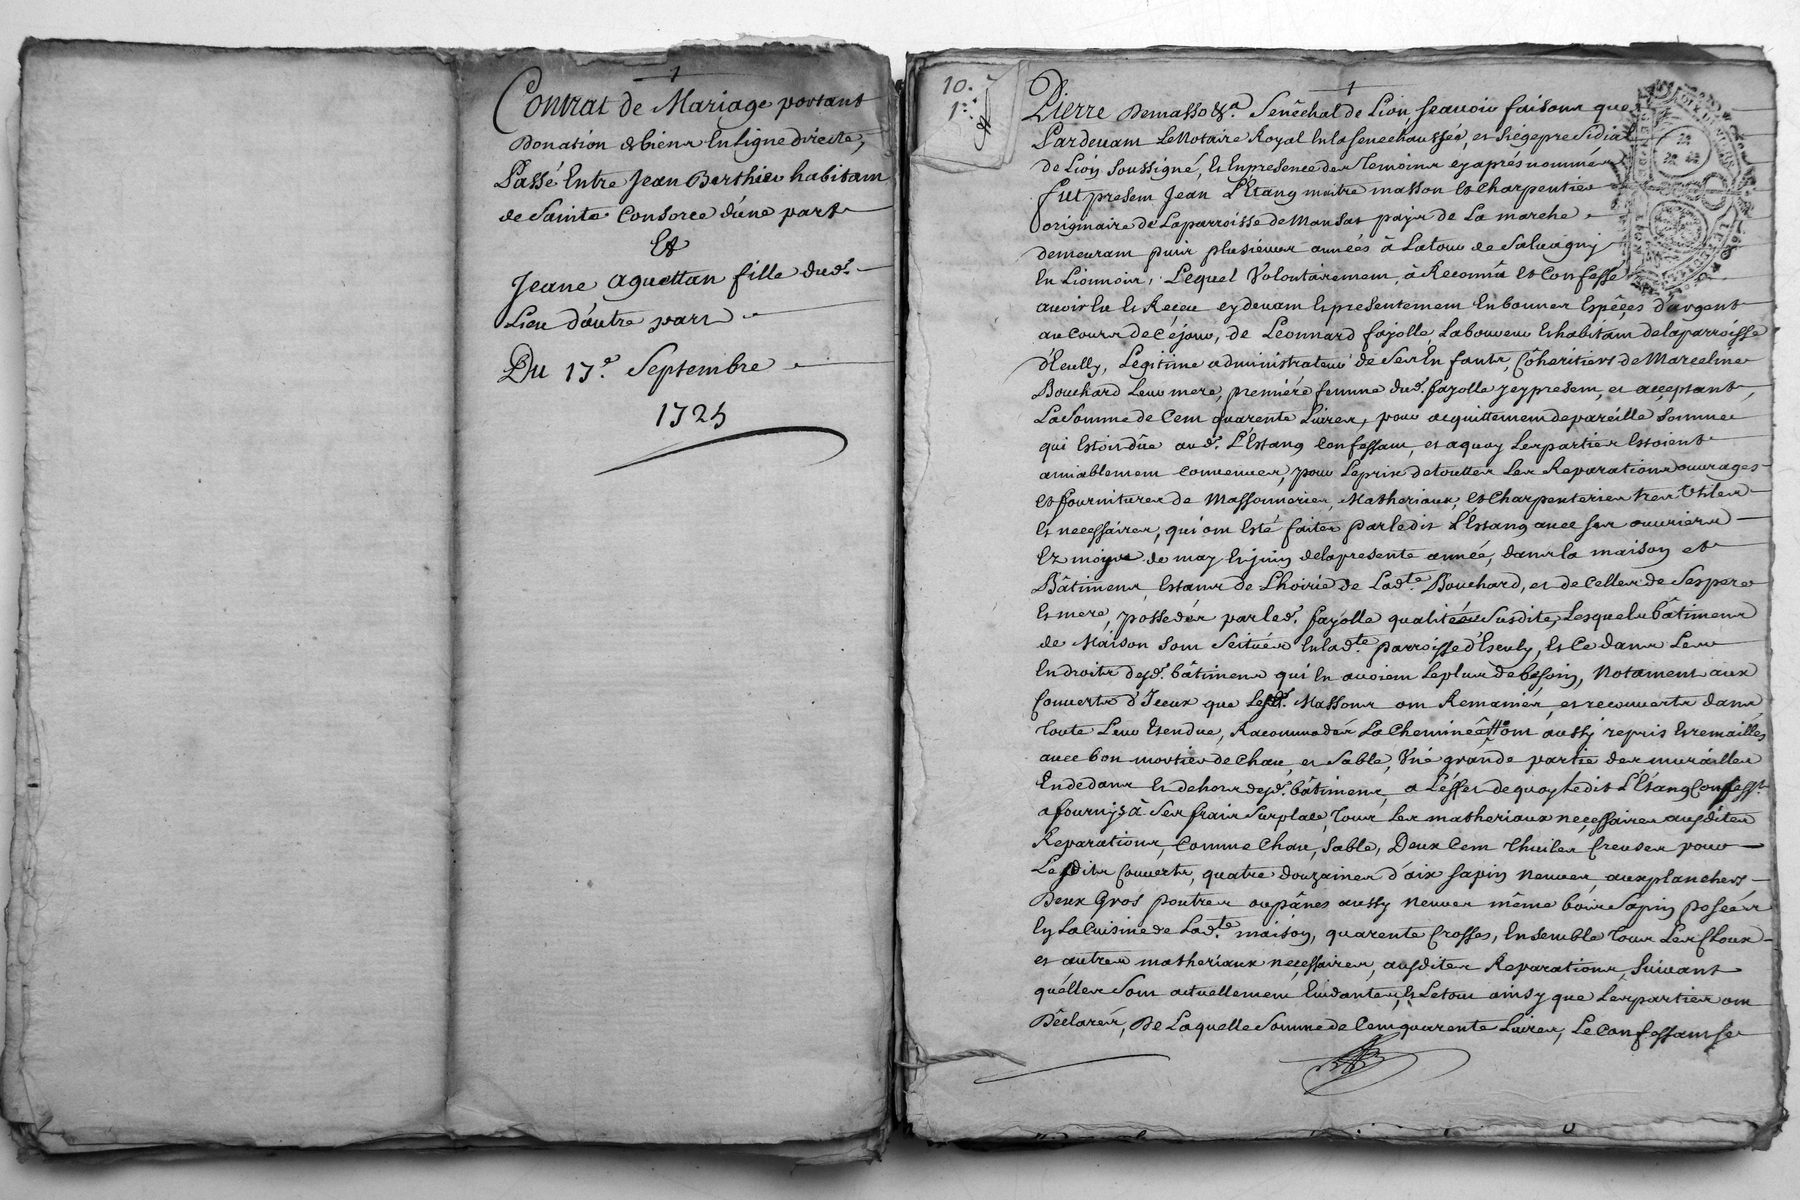 Contrat de Mariage portant
Donation de biens En Ligne Directe,
Passé Entre Jean Berthier habitant
de Sainte Consorce d'une part
Et
Jeane Aguettan fille dud.
Lieu d'autre part
Du 17.e Septembre
1725
10.
1.
Pierre Demasso &a. Senêchal de Lion, scavoir faisons que
Pardevant Le Notaire Royal En la Senechaussée, et Siege presidial
de Lion soussigné, Et En presence des Temoins cy aprés nommés
fut present Jean L'Etang maitre masson et charpentier
originaire de La parroisse de Mansat pays de La marche
demeurant puis plusieurs années à La tour de Salvagny
En Lionnois, Lequel Volontairement, à Reconnû et Confessé
avoir Eu et Receu cy devant Et presentement En bonnes Espêces d'argent
au cours de Céjour, de Léonnard fayolle Laboureur Et habitant de la parroisse
d'Eculy, Légitime administrateur de Ses Enfants, Côheritiers de Marceline
Bouchard Leur mere, premiére femme dud. fayolle y cy present, et acceptant,
La Somme de Cent quarente Livres, pour acquittement de pareille Somme
qui Estoit dûe aud. L'Estang Confessant, et a quoy Les parties Estoient
amiablement Convenues, pour Le prix de touttes Les Reparations ouvrages
et fournitures de Massonneries, Matheriaux, et Charpenteries tres Utiles
Et necessaires, qui ont Esté faites par ledit L'Estang avec ses ouvriers
Ez moys de may Et juin de la presente année, dans la maison et
Bâtimens Estans de L'hoirie de Lad.te Bouchard, et de Celles de Ses pere
Et mere, possedés par led. fayolle qualité Susdite, Lesquels bâtimens
de Maison sont Scitués En lad.te parroisse d'Esculy, Et Ce dans Les
Endroits desd. bâtimens qui En avoient Le plus de besoin, Notament aux
Couverts d'Iceux que Lesd. Massons ont Remaniés, et recouverts dans
toute Leur Etendue, Racommodés La Cheminée, ont aussy repris Et remaillés
avec bon mortier de Chau, et Sable, Une grande partie des murailles
En dedans Et dehors desd. bâtimens, a L'effet de quoy Ledit L'Etang Confess.t
a fourny à Ses frais Sur place, Tous Les matheriaux necessaires ausdites
Reparations, Comme Chau, Sable, Deux Cent Thuiles Creuses pour
Lesdits Couverts, quatre douzaines d'aix sapin Neuves aux planchers,
Deux Gros poutres ou pânes aussy Neuves même bois Sapin posées
En La Cuisine de Lad.te maison, quarente Crosses, Ensemble Tous Les Cloux
et autres matheriaux necessaires, ausdites Reparations, Suivant
quélles Sont actuellement Evidantes, Et Le tout ainsy que Les parties ont
Déclarés, De Laquelle Somme de Cent quarente Livres, Le Confessant se